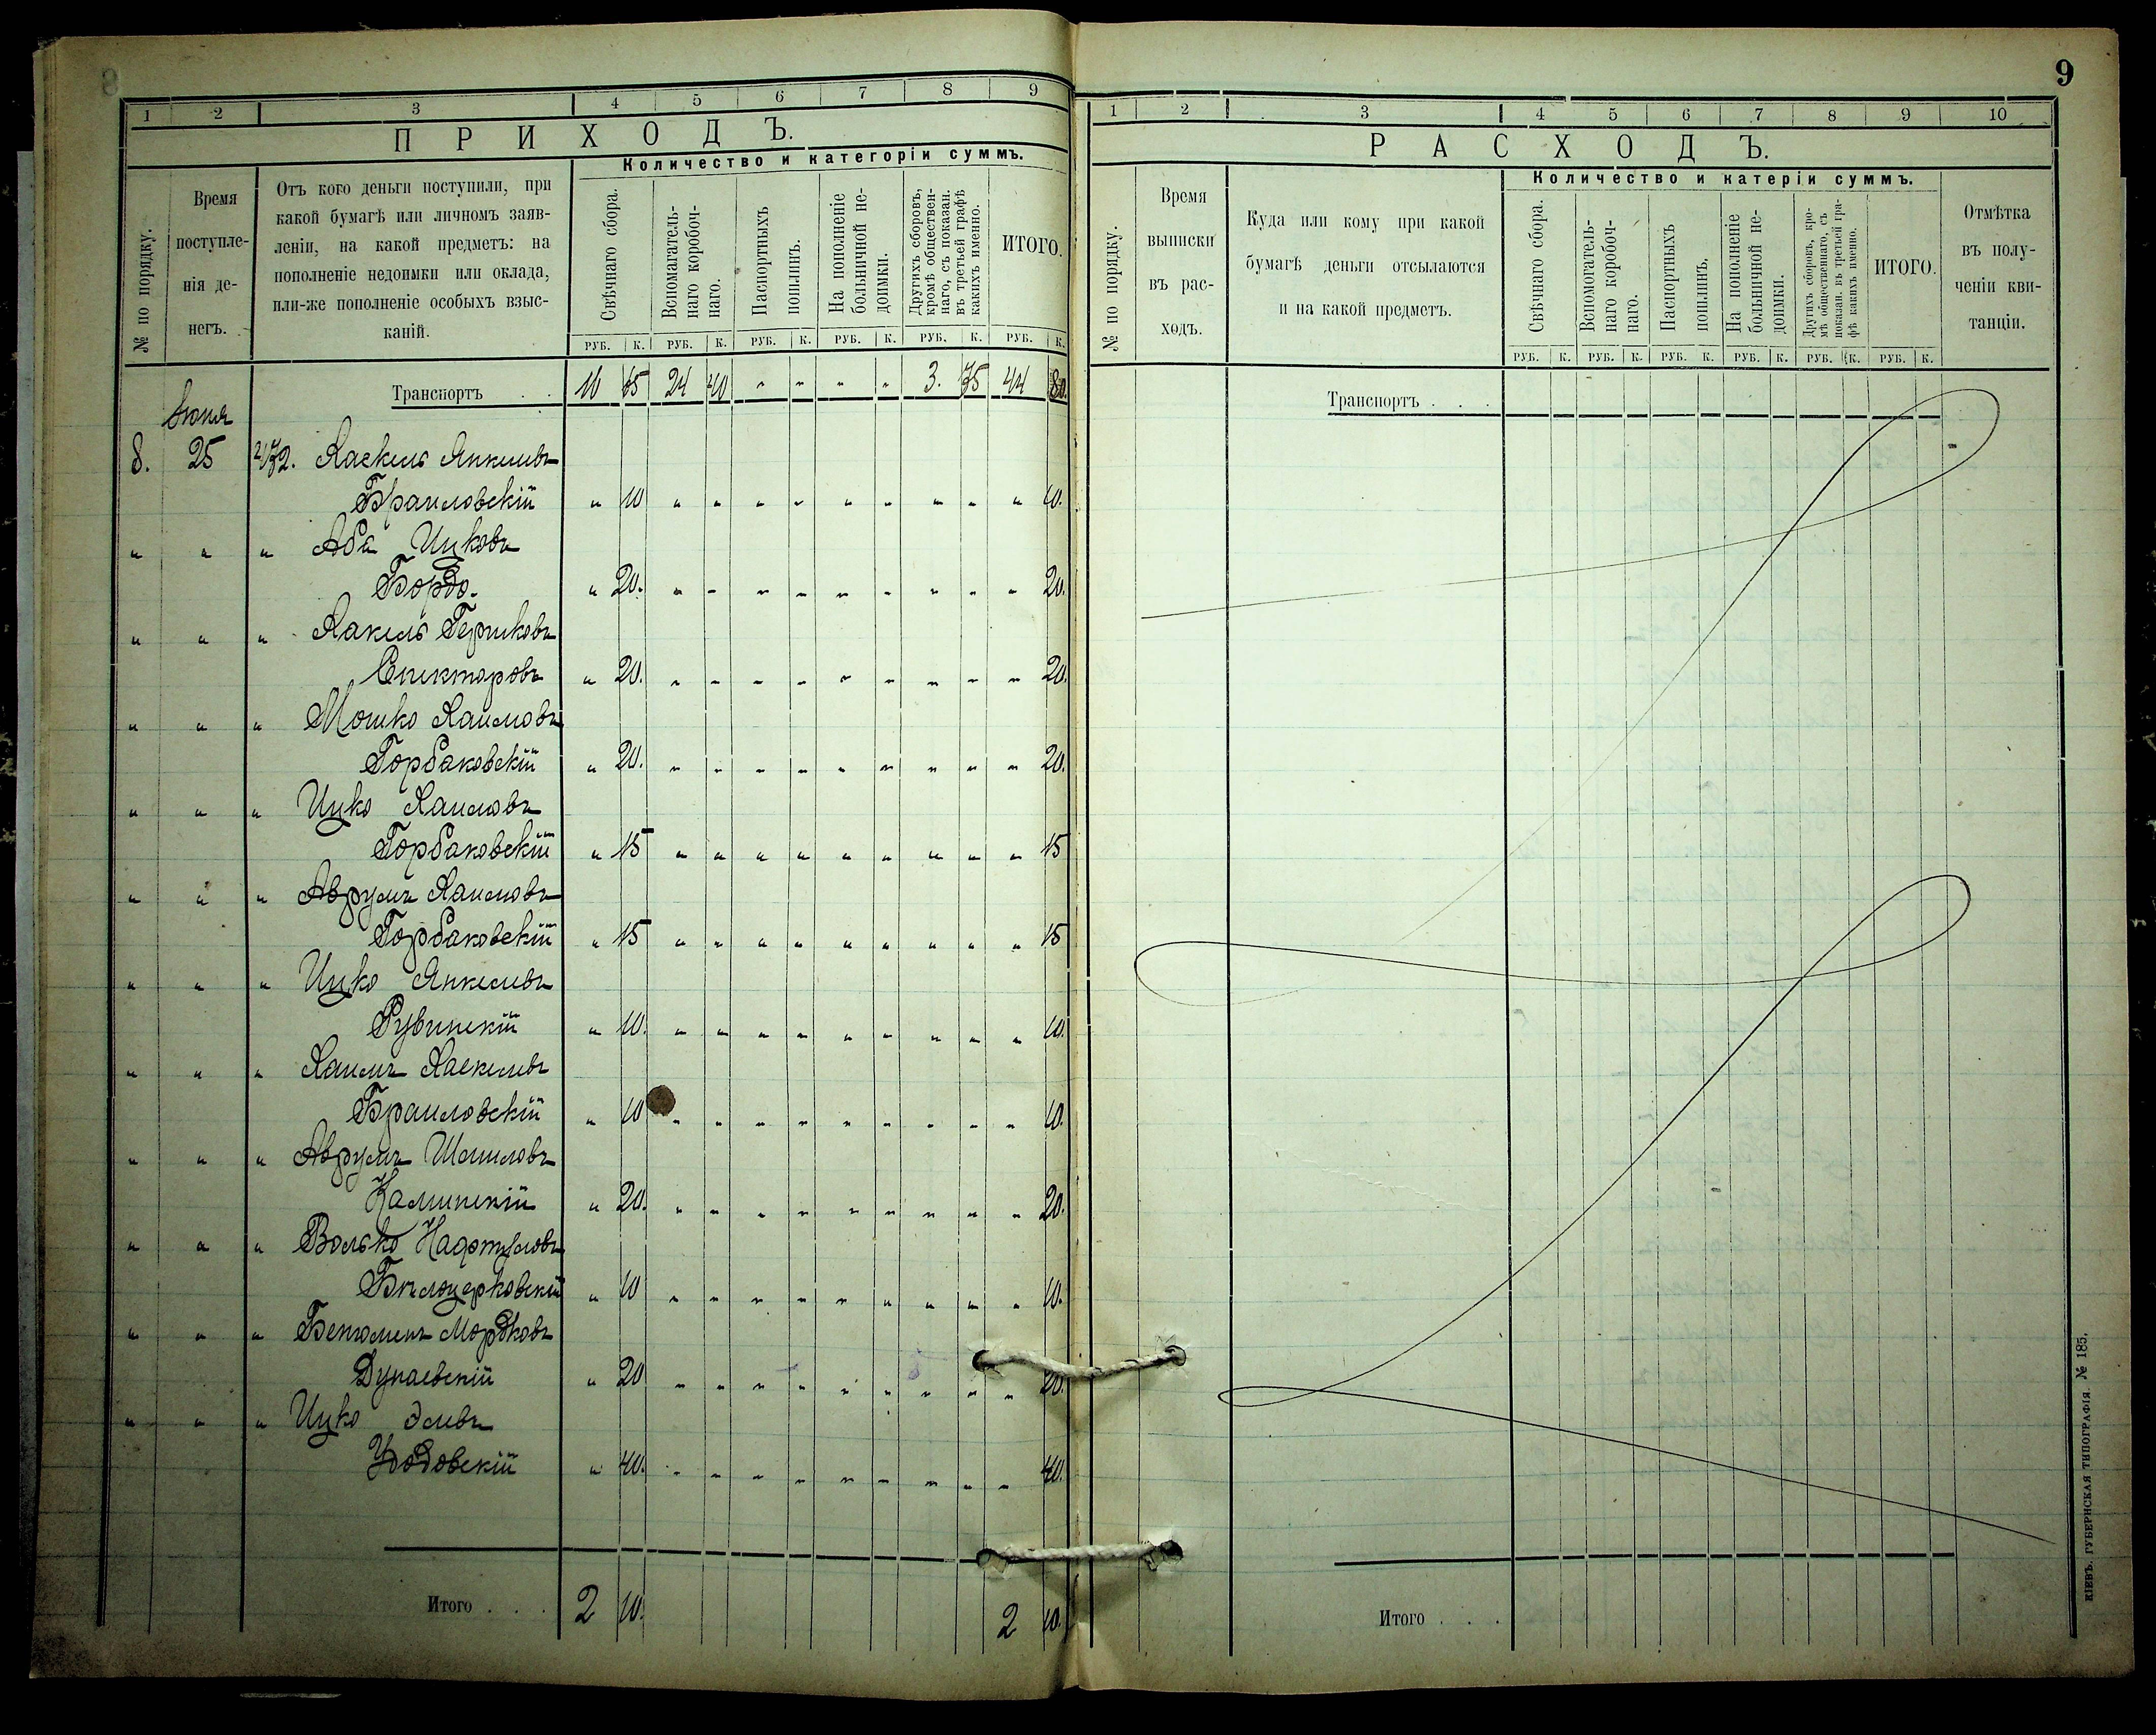 8
1 2 3 4 5 6 7 8 9
ПРИХОДЪ.
Количество и категоріи суммъ.
№ по порядку.
Время
поступле-
нія де-
негъ.
Отъ кого деньги поступили, при
какой бумагѣ или личномъ заяв-
леніи, на какой предметъ: на
пополненіе недоимки или оклада,
или-же пополненіе особыхъ взыс-
каній.
Свѣчнаго сбора.
Вспомагатель-
наго коробоч-
наго.
Паспортныхъ
пошлинъ.
На пополненіе
больничной не-
доимки.
Другихъ сборовъ,
кромѣ обществен-
наго, съ показан.
въ третьей графѣ
какихъ именно.
ИТОГО.
РУБ. К. РУБ. К. РУБ. К. РУБ. К. РУБ. К. РУБ. К.
Транспортъ . . 16 65 24 40 " " " " 3. 75 44 80.
Іюня
8. 25 Хаскель Янкелевъ
Браиловскій " 10 " " " " " " " " " 10.
" " " Аба Ицковъ
Бордо. " 20. " " " " " " " " " 20.
" " " Хакель Гершковъ
Спекторовъ " 20. " " " " " " " " " 20.
" " " Мошко Хаимовъ
Горбаковскій " 20. " " " " " " " " " 20.
" " " Ицко Хаимовъ
Горбаковскій " 15 " " " " " " " " " 15
" " " Аврумъ Хаимовъ
Горбаковскій " 15 " " " " " " " " " 15
" " " Ицко Янкелевъ
Рубинскій " 10. " " " " " " " " " 10.
" " " Хаимъ Хаскелевъ
Браиловскій " 10 " " " " " " " " " 10.
" " " Аврумъ Шмилевъ
Калинскій " 20. " " " " " " " " " 20.
" " " Волько Нафтуловъ
Бѣлоцерковскій " 10 " " " " " " " " " 10.
" " " Беньоминъ Мордковъ
Дунаевскій " 20 " " " " " " " " " 20.
" " " Ицко Элевъ
Удодовскій " 40. " " " " " " " " " 40.
Итого . . . 2 10. 2 10.
9
1 2 3 4 5 6 7 8 9 10
РАСХОДЪ.
Количество и катеріи суммъ.
№ по порядку.
Время
выписки
въ рас-
ходъ.
Куда или кому при какой
бумагѣ деньги отсылаются
и на какой предметъ.
Свѣчнаго сбора.
Вспомогатель-
наго коробоч-
наго.
Паспортныхъ
пошлинъ.
На пополненіе
больничной не-
доимки.
Другихъ сборовъ, кро-
мѣ общественнаго, съ
показан. въ третьей гра-
фѣ какихъ именно.
ИТОГО.
Отмѣтка
въ полу-
ченіи кви-
танціи.
РУБ. К. РУБ. К. РУБ. К. РУБ. К. РУБ. К. РУБ. К.
Транспортъ . . .
Итого . . .
КІЕВЪ. ГУБЕРНСКАЯ ТИПОГРАФІЯ. № 185.